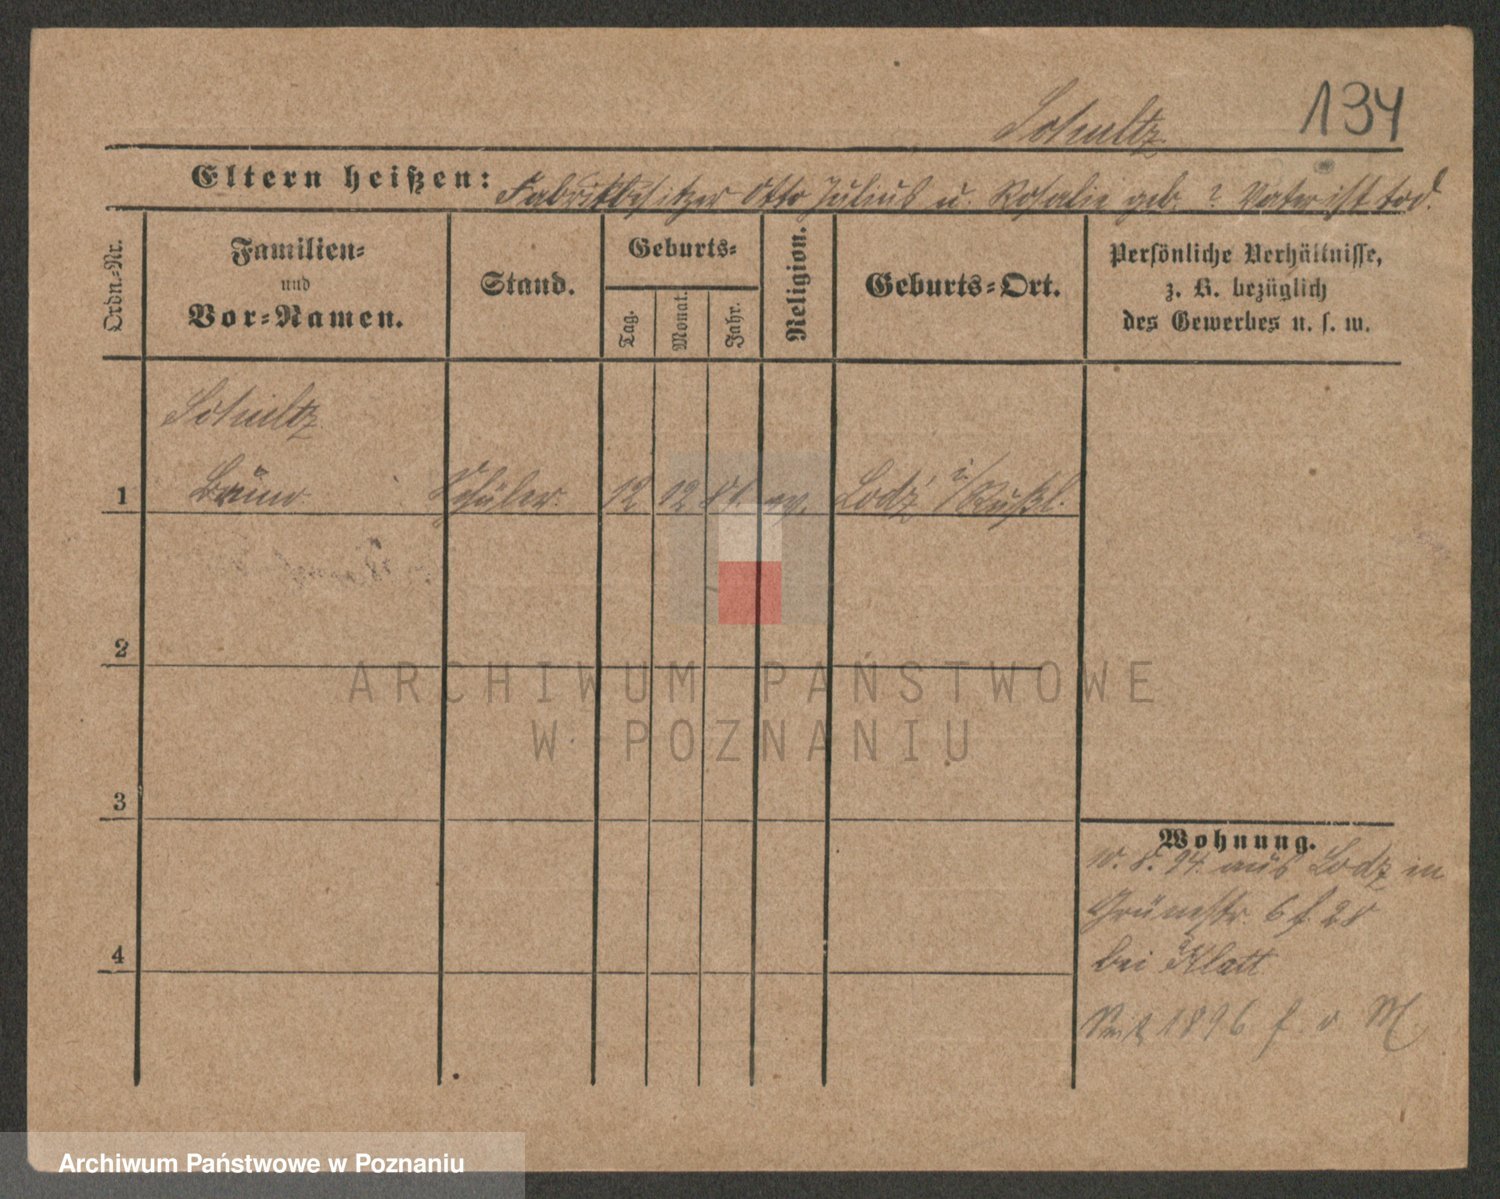 Schultz
134
Eltern heißen: Fabrikbesitzer Otto Julius u. Rosalie geb. ? Vater ist tod.
Ordn.-Nr.
Familien-
und
Vor-Namen.
Stand.
Geburts-
Tag.
Monat.
Jahr.
Religion.
Geburts-Ort.
Persönliche Verhältnisse,
z. B. bezüglich
des Gewerbes u. s. w.
Schultz
1 Bruno Schüler. 12 12 81. ev. Lodz i/Rußl.
2
3
4
Wohnung.
10. 8. 94. aus Lodz in
Grünestr. 6 f. 28
bei Klatt
1896
ARCHIWUM PAŃSTWOWE
W POZNANIU
Archiwum Państwowe w Poznaniu